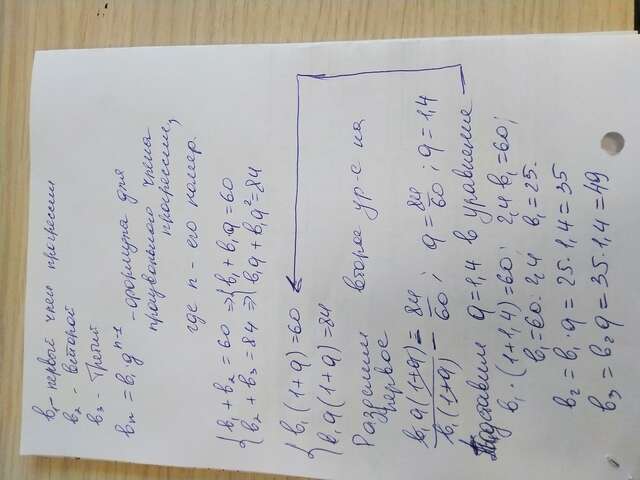 b₁ - первый член прогрессии
b₂ - второй
b₃ - третий
bₙ = b₁ · qⁿ⁻¹ - формула для
произвольного члена
прогрессии,
где n - его номер.
{ b₁ + b₂ = 60 ⇒ { b₁ + b₁q = 60
{ b₂ + b₃ = 84 ⇒ { b₁q + b₁q² = 84
{ b₁(1+q) = 60
{ b₁q(1+q) = 84
Разделим второе ур-е на
первое
b₁q(1+q) / b₁(1+q) = 84/60; q = 84/60; q = 1,4
Подставим q = 1,4 в уравнение
b₁ · (1+1,4) = 60; 2,4 b₁ = 60;
b₁ = 60 : 2,4 b₁ = 25.
b₂ = b₁ · q = 25 · 1,4 = 35
b₃ = b₂q = 35 · 1,4 = 49